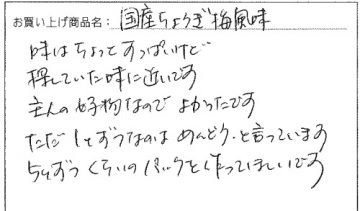 お買い上げ商品名: 国産ちょうぎ梅風味
味はちょっとすっぱいけど
探していた味に近いです
主人の好物なので よかったです
ただ 1ヶずつなのは めんどう、と言っています
5ヶずつくらいのパックを作ってほしいです